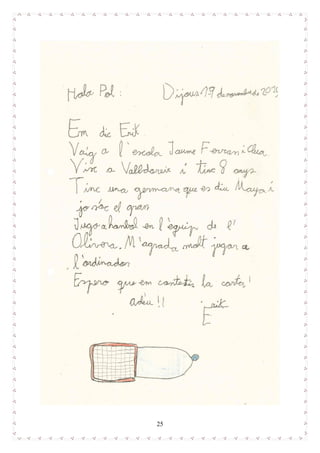 Hola Pol: Dijous 19 de novembre de 2015
Em dic Erik.
Vaig a l'escola Jaume Ferran i Clua
Visc a Valldoreix i tinc 8 anys
Tinc una germana que es diu Maya i
jo sóc el gran
Jugo a hanbol en l'equip de l'
Olivera. M'agrada molt jugar a
l'ordinador
Espero que em contestis la carta!
adéu!! Erik
E
25